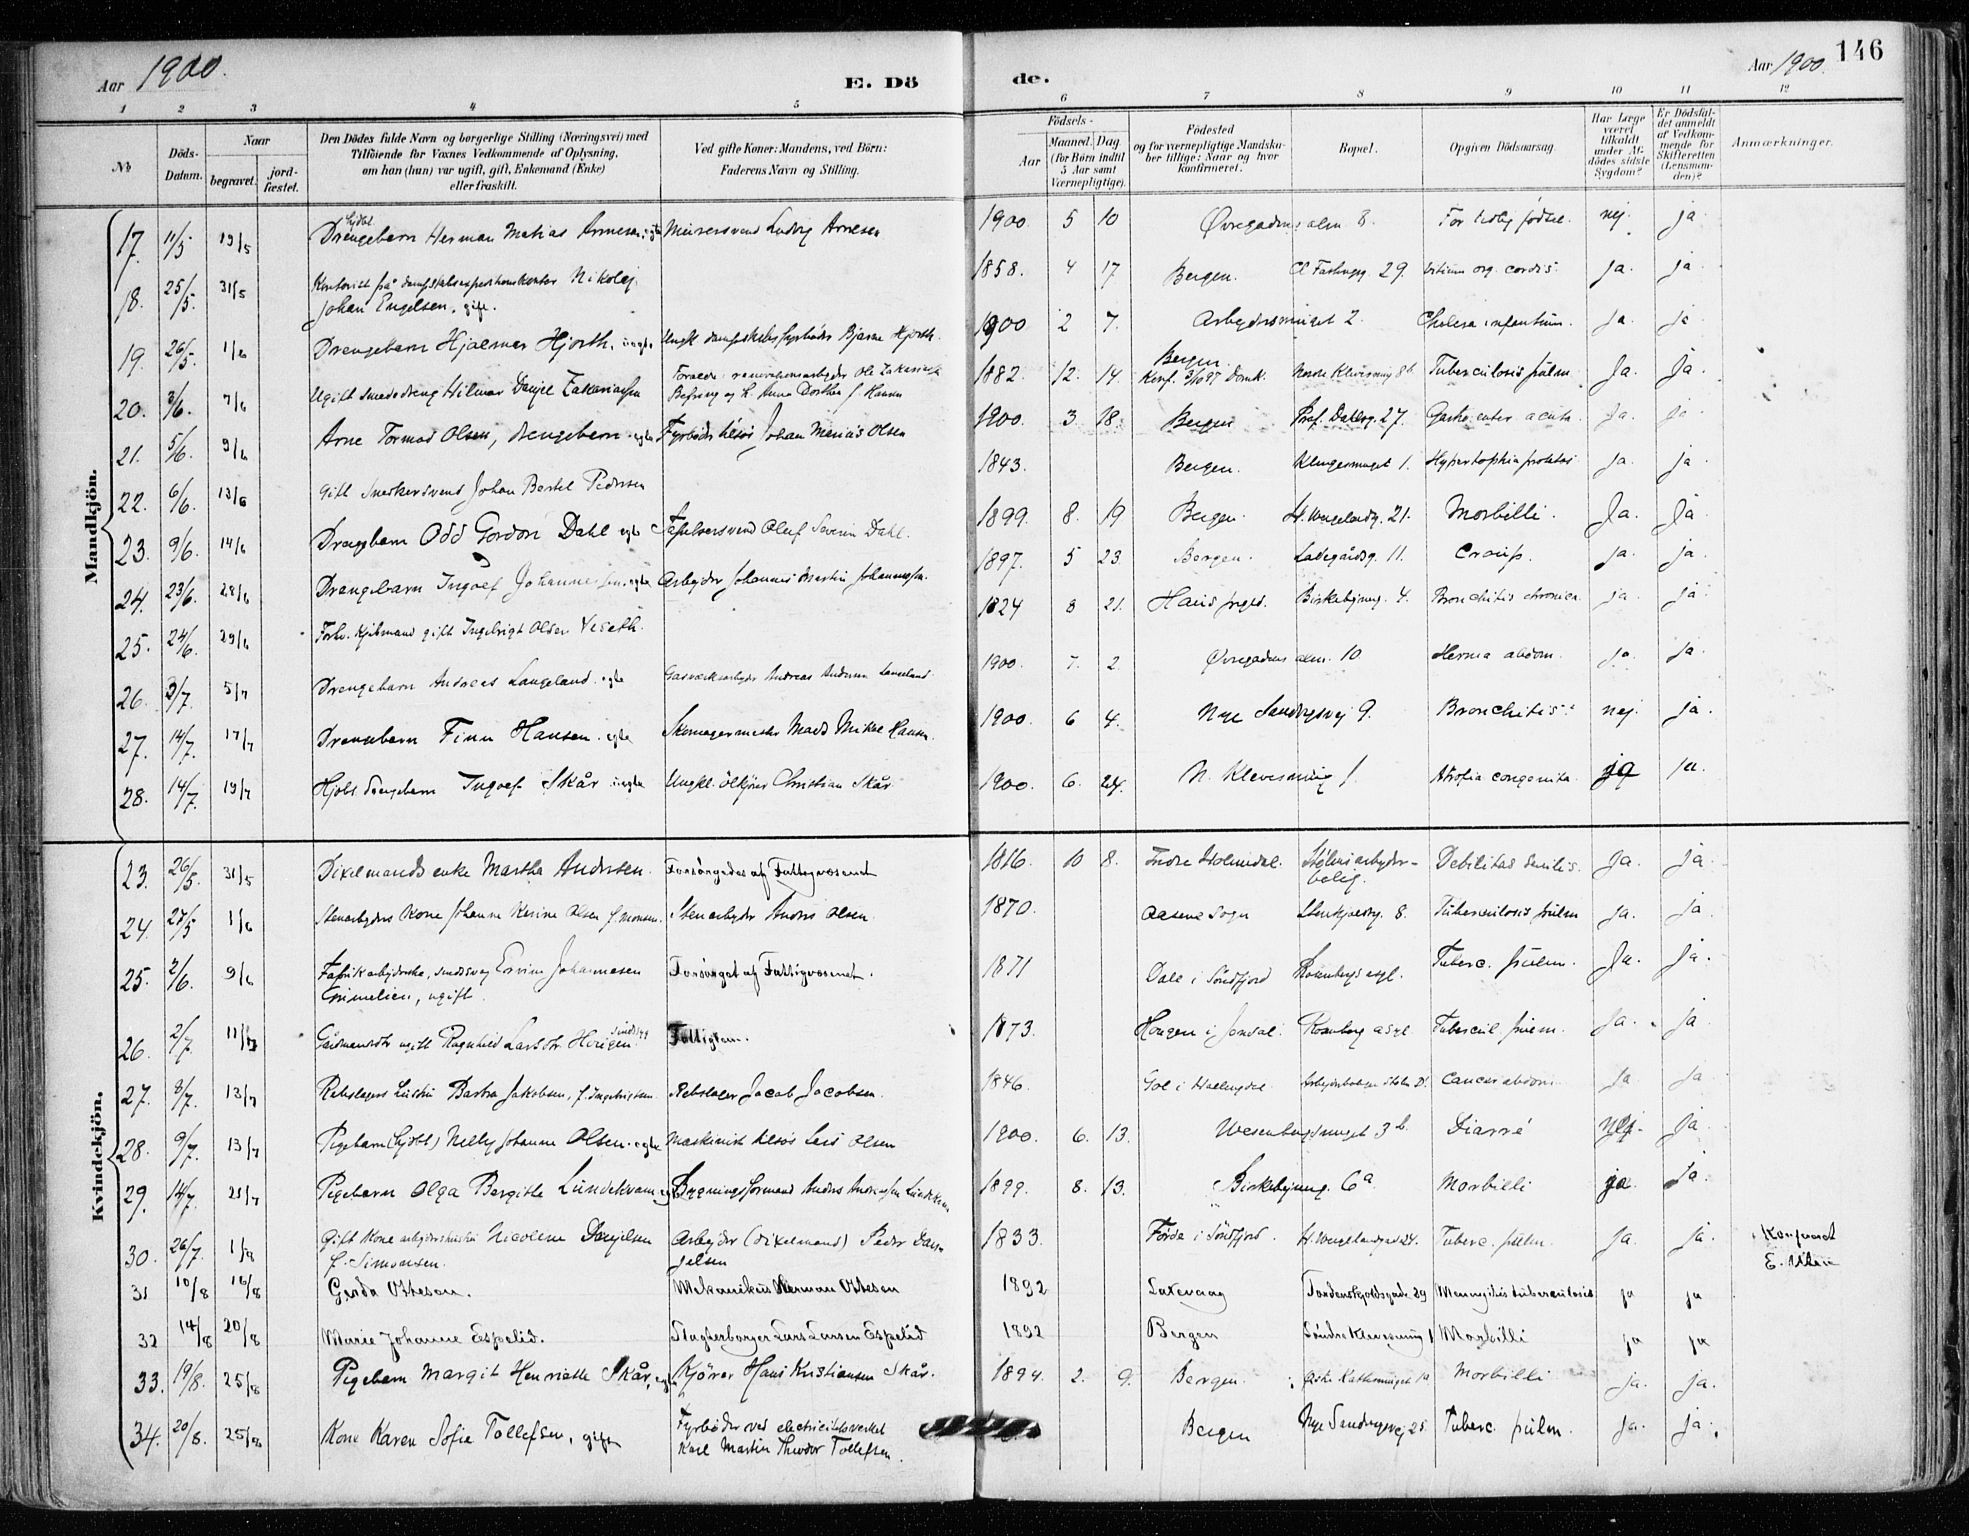 Aar 1900.
E. Dö
de.
Aar 1900.
146
1 2 3 4 5 6 7 8 9 10 11 12
No
Döds-Datum.
Naar
begravet.
jord-fæstet.
Den Dödes fulde Navn og borgerlige Stilling (Næringsvei) med
Tilföiende for Voxnes Vedkommende af Oplysning,
om han (hun) var ugift, gift, Enkemand (Enke)
eller fraskilt.
Ved gifte Koner: Mandens, ved Börn:
Faderens Navn og Stilling.
Födsels-
Aar
Maaned. Dag
(for Börn indtil
5 Aar samt
Værnepligtige).
Födested
og for værnepligtige Mandska-
ber tillige: Naar og hvor
konfirmeret.
Bopæl.
Opgiven Dödsaarsag.
Har Læge
været
tilkaldt
under Af-
dödes sidste
Sygdom?
Er Dödsfal-
det anmeldt
af Vedkom-
mende for
Skifteretten
(Lensman-
den)?
Anmærkninger.
Mandkjön.
17. 11/5 19/5 Drengebarn Herman Matias Arnesen, Murersvend Ludvig Arnesen 1900 5 10 Øvregadens alm 8. For tidlig födsel. nej. ja
18. 25/5. 31/5 Kontorist på Nikolaj
Johan Engelsen, gift. 1858. 4 17 Bergen. 29. vitium org. cordis. ja. ja
19. 26/5. 1/6 Drengebarn Hjalmar Hjorth, uægte Bjarne Hjorth. 1900 2 7. Arbeidersmuget 2. Cholera infantum. ja. ja
20. 3/6. 7/6 Ugift Smededreng Hilmar Danjel Zakariassen Ole Zakariasen
Anna Dorthea f. Hansen 1882. 12. 14 Bergen.
Konf. 3/10 97 Domk. Tuberculosis pulm Ja. Ja
21. 5/6. 9/6 Arne Tormod Olsen, drengebarn ægte Fyrböder tilsös Johan Marius Olsen 1900. 3 18. Bergen Prof. Dahlsg. 27. Gastro enter acuta. Ja ja
22. 6/6. 13/6 Gift Snedkersvend Johan Bertel Pedersen 1843. Bergen. Klingesmuget 1. Hypertophia prostata ja. ja
23. 9/6. 14/6 Drengebarn Odd Gordon Dahl ægte Oluf Severin Dahl. 1899. 8. 19 Bergen. H. Wergelandsg. 21. Morbilli. Ja. Ja
24. 23/6. 28/6 Drengebarn Ingolf Johannessen. ægte Arbejder Johannes Martin Johannessen. 1897. 5 23. Bergen. Ladegårdsg. 11. Croup. ja. ja
25. 24/6. 29/6 Forhv. gift Ingebrigt Olsen Veseth. 1824 8 21. Haus prgd. Birkebejnerg. 4. Bronchitis chronica. ja. ja
26. 3/7. 5/7 Drengebarn Andreas Langeland. ægte Gasverksarbejder Andreas Andersen Langeland 1900 7. 2. Øvregadens alm. 10 Hernia abdom. ja. ja
27. 14/7. 17/7 Drengebarn Finn Hansen. ægte Skomagermester Mads Mikal Hansen. 1900. 6 4. Nye Sandvigsvej 9. Bronchitis nej. ja.
28. 14/7. 19/7 Hjdbt. drengebarn Ingolf Skår uægte Ungkl. ölkjörer Christian Skår 1900. 6. 24. N. Klevesmug 1. Atrofia congenita. ja ja
Kvindekjön.
23. 26/5. 31/5 Dixelmands enke Martha Andersen. Forsörgedes af Fattigvæsenet 1816. 10 8. Indre Holmedal. Stölens arbejder-
bolig. Debilitas senilis. Ja. ja.
24. 27/5 1/6 Stenarbejders Kone Johanne Karine Olsen f. Monsen. Stenarbejder Anders Olsen. 1870. Aasene Sogn Stenkjælderg. 8. Tuberculosis pulm ja. ja
25. 2/6. 9/6 Fabrikarbejderske, Johannesen
Grimelien, ugift. Forsörget af Fattigvæsenet. 1871 Dale i Söndfjord Rosenbergs asyl. Tuberc. pulm. Ja. ja.
26. 2/7. 11/7 Gårdmandsdtr ugift Ragnhild Larsdtr Haugen. Fattiglem. 1873. Haugen i Jondal. Rosenberg asyl Tubercul. pulm. Ja. ja
27. 8/7. 13/7 Rebslagers hustru Barbra Jakobsen, f. Ingebrigtsen. Rebslager Jacob Jacobsen. 1846. Gol i Hallingdal Cancer abdom. ja ja
28. 9/7. 13/7 Pigebarn (hjdbt) Nelly Johanne Olsen. ægte Maskinist tilsös Lars Olsen 1900. 6. 13. Wesenbergsmuget 3b. Diarré nej. ja
29. 14/7. 21/7 Pigebarn Olga Bergitte Lundekvam ægte Bygningsformand Anders Andersen Lundekvam 1899. 8. 13. Birkebejnerg. 6a Morbilli ja. ja.
30. 26/7. 1/8 Gift Kone arbejderhustru Nicoline Danjelsen
f. Simonsen. Arbejder (dixelmand) Peder Dan-
jelsen 1833. Førde i Söndfjord. H. Wergelandsgade 24. Tuberc. pulm. ja. ja. Konfereret
31 10/8 16/8 Gerda Ottesen. Mekanikus Herman Ottesen 1892 Laxevaag Tordenskjoldsgade 29 Meningitis tuberculosis ja ja
32 14/8 20/8 Marie Johanne Espelid. Slagterborger Lars Larsen Espelid 1892 Bergen Söndre Klevesmug 1 Morbilli ja ja
33. 19/8. 25/8 Pigebarn Margit Henriette Skår, ægte Kjörer Hans Kristiansen Skår. 1894. 2. 9. Bergen. Morbilli ja. ja.
34. 20/8. 25/8 Kone Karen Sofie Tollefsen, gift Fyrböder ved electricitetsverket
Karl Martin Theodor Tollefsen. Bergen Nye Sandvigsvej 25 Tuberc. pulm. ja. ja.